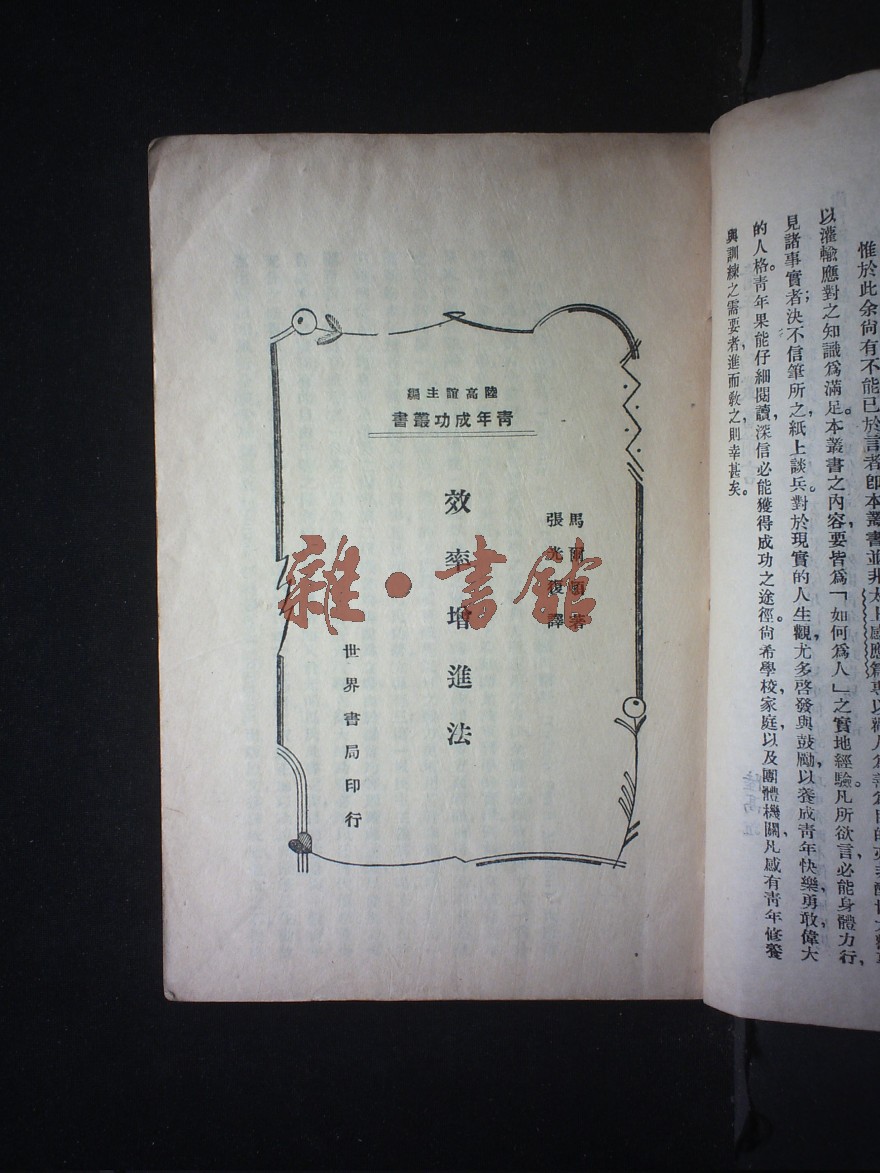 惟於此余尙有不能已於言者卽本叢書並非太上感應篇專以勸人爲善爲目的亦非
以灌輸應對之知識爲滿足。本叢書之內容要皆爲「如何爲人」之實地經驗凡所欲言必能身體力行，
見諸事實者；決不信筆所之紙上談兵對於現實的人生觀，尤多啓發與鼓勵以養成靑年快樂勇敢偉大
的人格。靑年果能仔細閱讀，深信必能獲得成功之途徑。尙希學校，家庭以及團體機關，凡感有靑年修養
與訓練之需要者，進而敎之則幸甚矣。
陸高誼主編
靑年成功叢書
馬爾頓著
張光復譯
效率增進法
世界書局印行
雜·書館